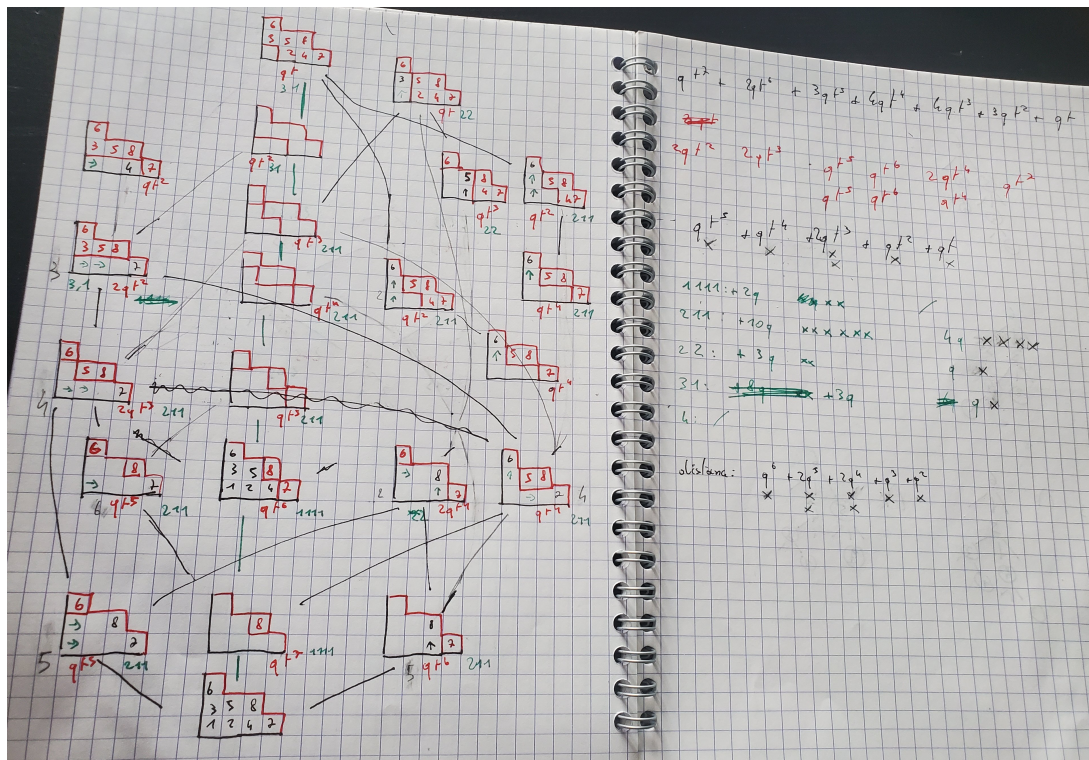 6
3 5 8
2 4 7
qt
31
6
3 5 8
↑ 2 4 7
qt 22
6
3 5 8
→ 4 7
qt²
qt² 31
6
5 8
↑ 4 7
qt³
22
6
↑ 5 8
↑ 4 7
qt² 211
6
3 5 8
→ → 7
3
3,1 2qt²
qt³ 211
qt⁴
211
6
↑
↑ 4 7
2
qt² 211
6
↑ 5 8
7
qt⁴ 211
6
5 8
→ → 7
4
2qt³ 211
qt⁵ 211
6
↑ 5 8
7
qt⁴
6
8
→ 7
6 qt⁵ 211
6
3 5 8
1 2 4 7
qt⁶ 1111
6
→ 8
↑ 7
2 2qt⁴
6
↑ 5 8
→ 7
4
qt⁴
211
6
→ 8
→ 7
5 qt⁵ 211
8
qt⁷ 1111
8
↑ 7
5 qt⁶ 211
6
3 5 8
1 2 4 7
qt⁷ + 2qt⁶ + 3qt⁵ + 4qt⁴ + 4qt³ + 3qt² + qt
2qt² 2qt³ qt⁵ qt⁶ 2qt⁴ qt⁷
qt⁵ qt⁶ qt⁴
qt⁵ + qt⁴ + 2qt³ + qt² + qt
x x x x x
x
1111: +2q xx
211: +10q xxxxxx 4q xxxx
22: +3q xx q x
31: +3q q x
4:
distance: q⁶ + 2q⁵ + 2q⁴ + q³ + q²
x x x x x
x x